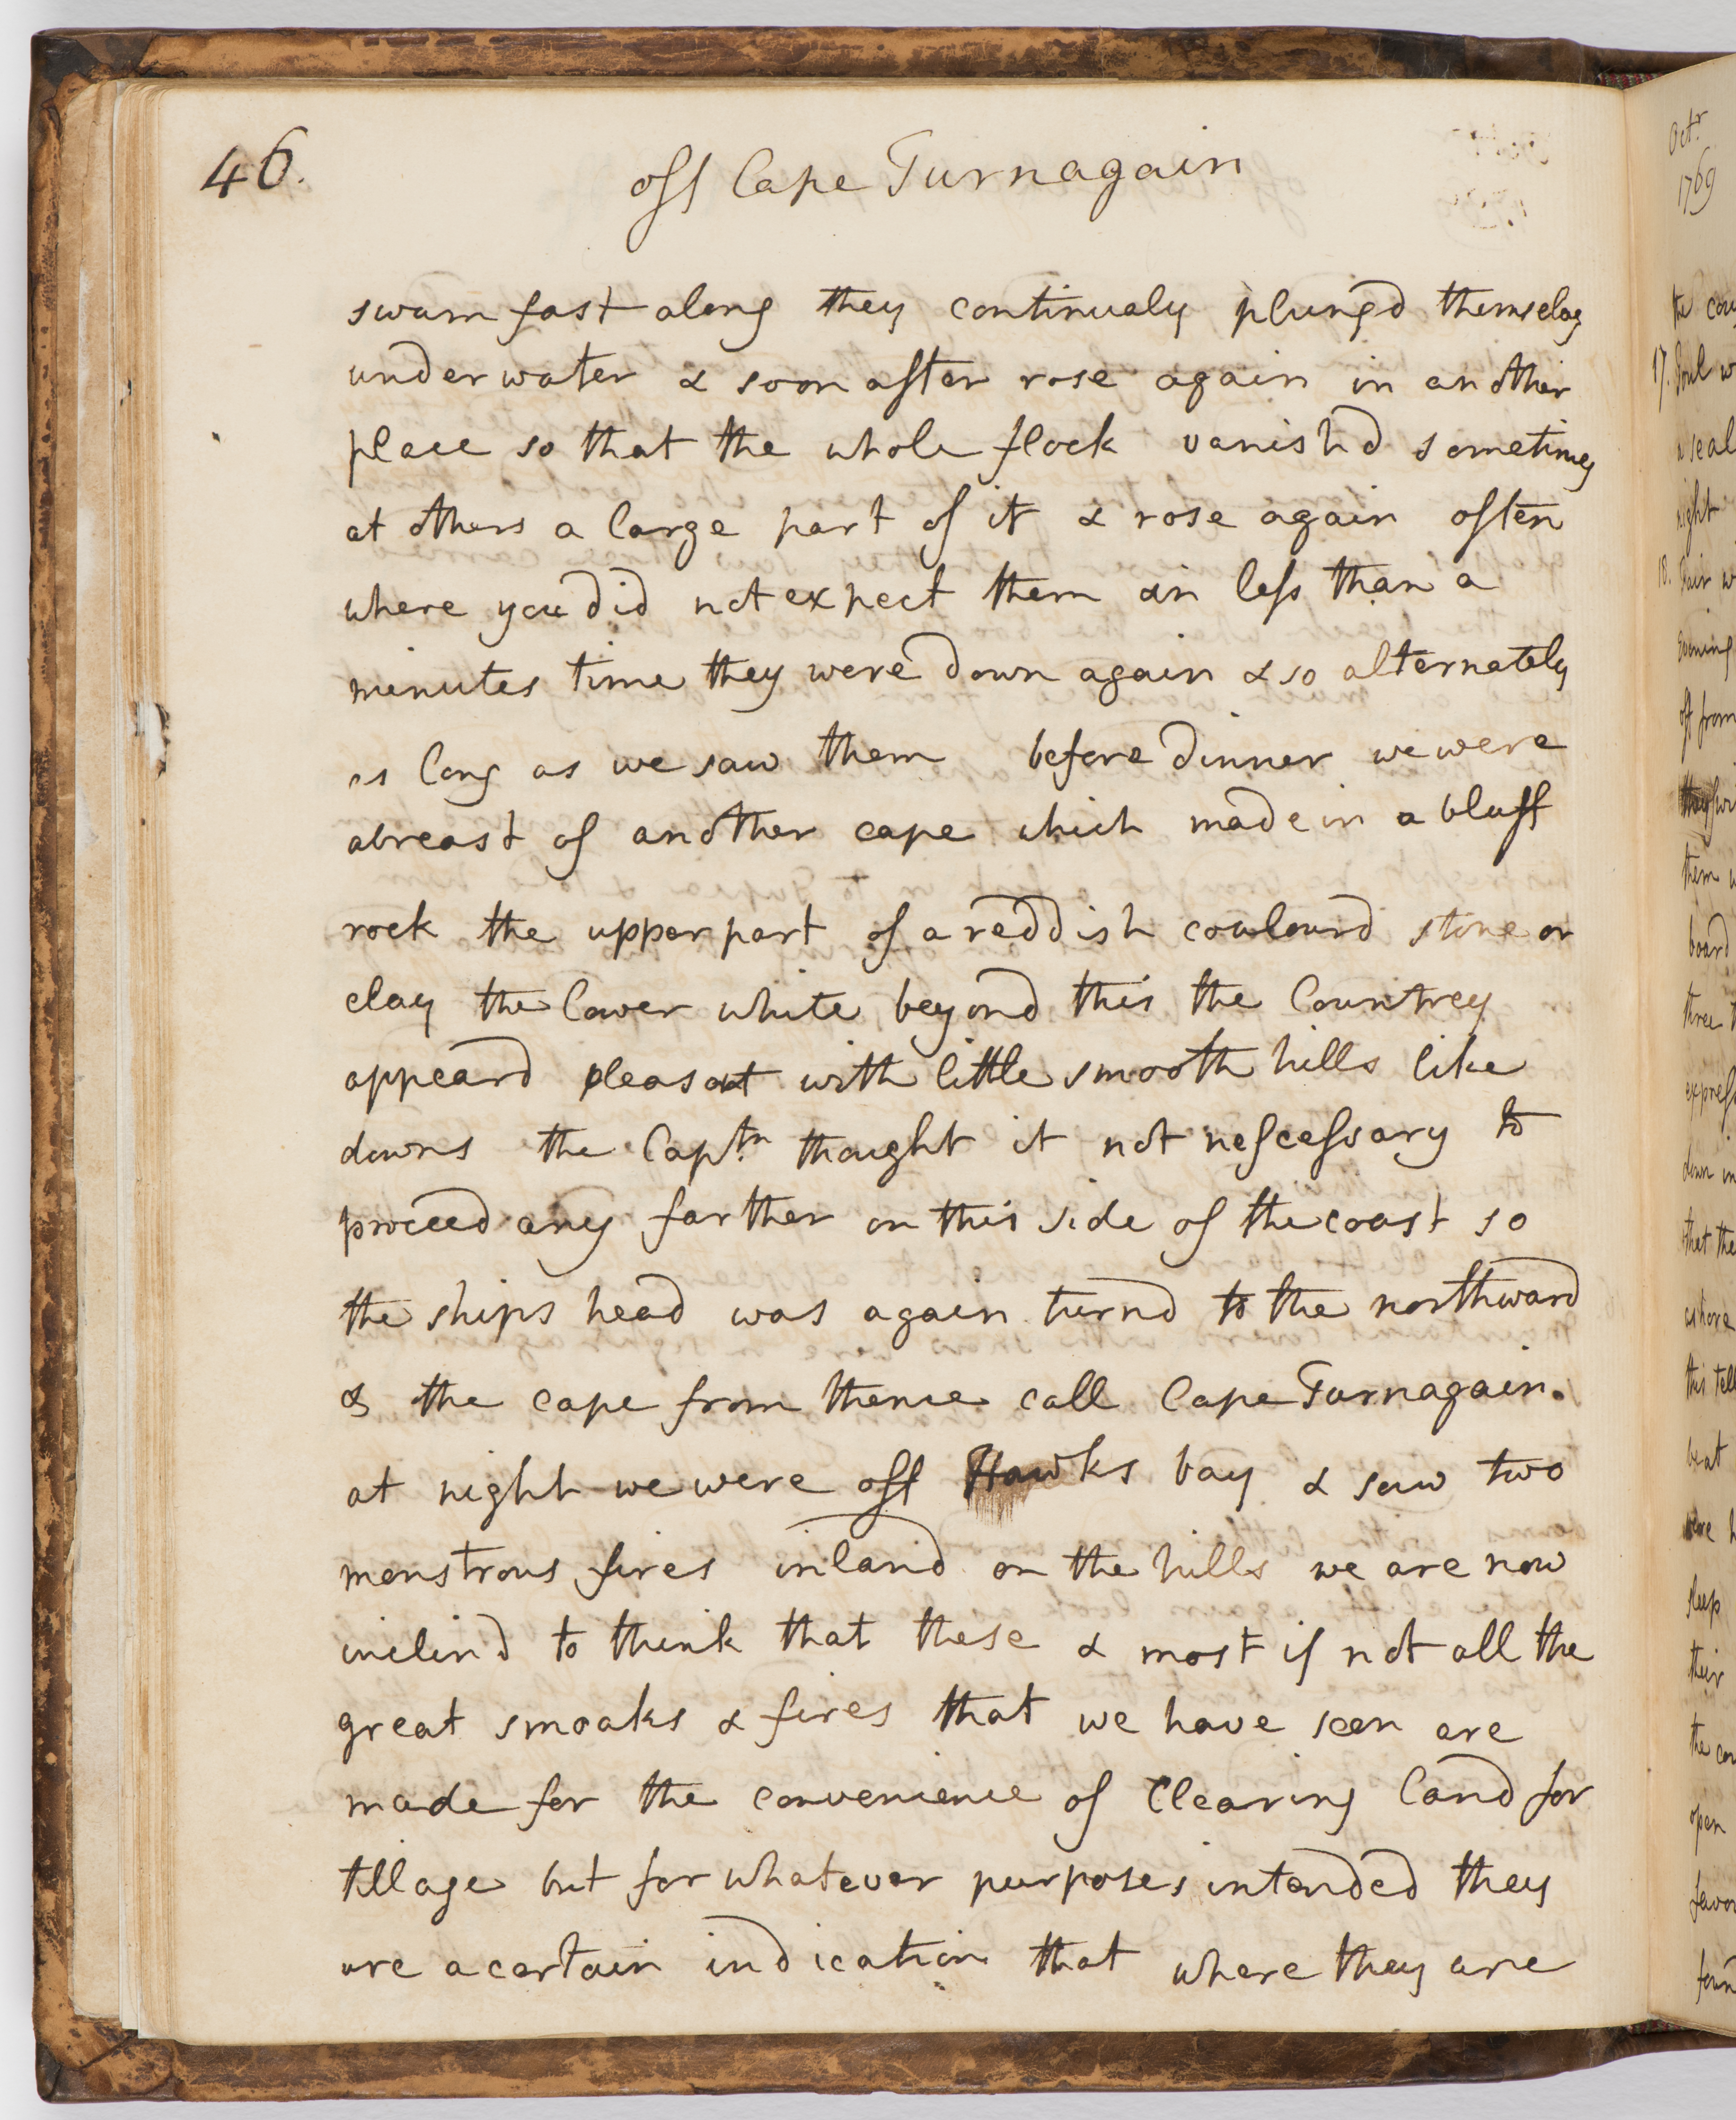 46.
off Cape Turnagain
swam fast along they continualy plung'd themselves
under water & soon after rose again in another
place so that the whole flock vanish'd sometimes
at others a large part of it & rose again often
where you did not expect them in less than a
minutes time they were down again & so alternately
as long as we saw them before dinner we were
abreast of another cape which made in a bluff
rock the upper part of a reddish coulourd stone or
clay the lower white beyond this the Countrey
appeard pleasant with little smooth hills like
downs the Captn. thought it not nescessary to
proceed any farther on this side of the coast so
the ships head was again turnd to the northward
& the cape from thence call Cape Turnagain.
at night we were off Hawks bay & saw two
monstrous fires inland on the hills we are now
inclind to think that these & most if not all the
great smoaks & fires that we have seen are
made for the convenience of Clearing land for
tillage but for whatever purposes intended they
are a certain indication that where they are
Octr
1769
the
17.
a seal
night
18. Fair
Evening
off from
them
board
three
express
down
that the
ashore
this
beat
were
sleep
their
the
open